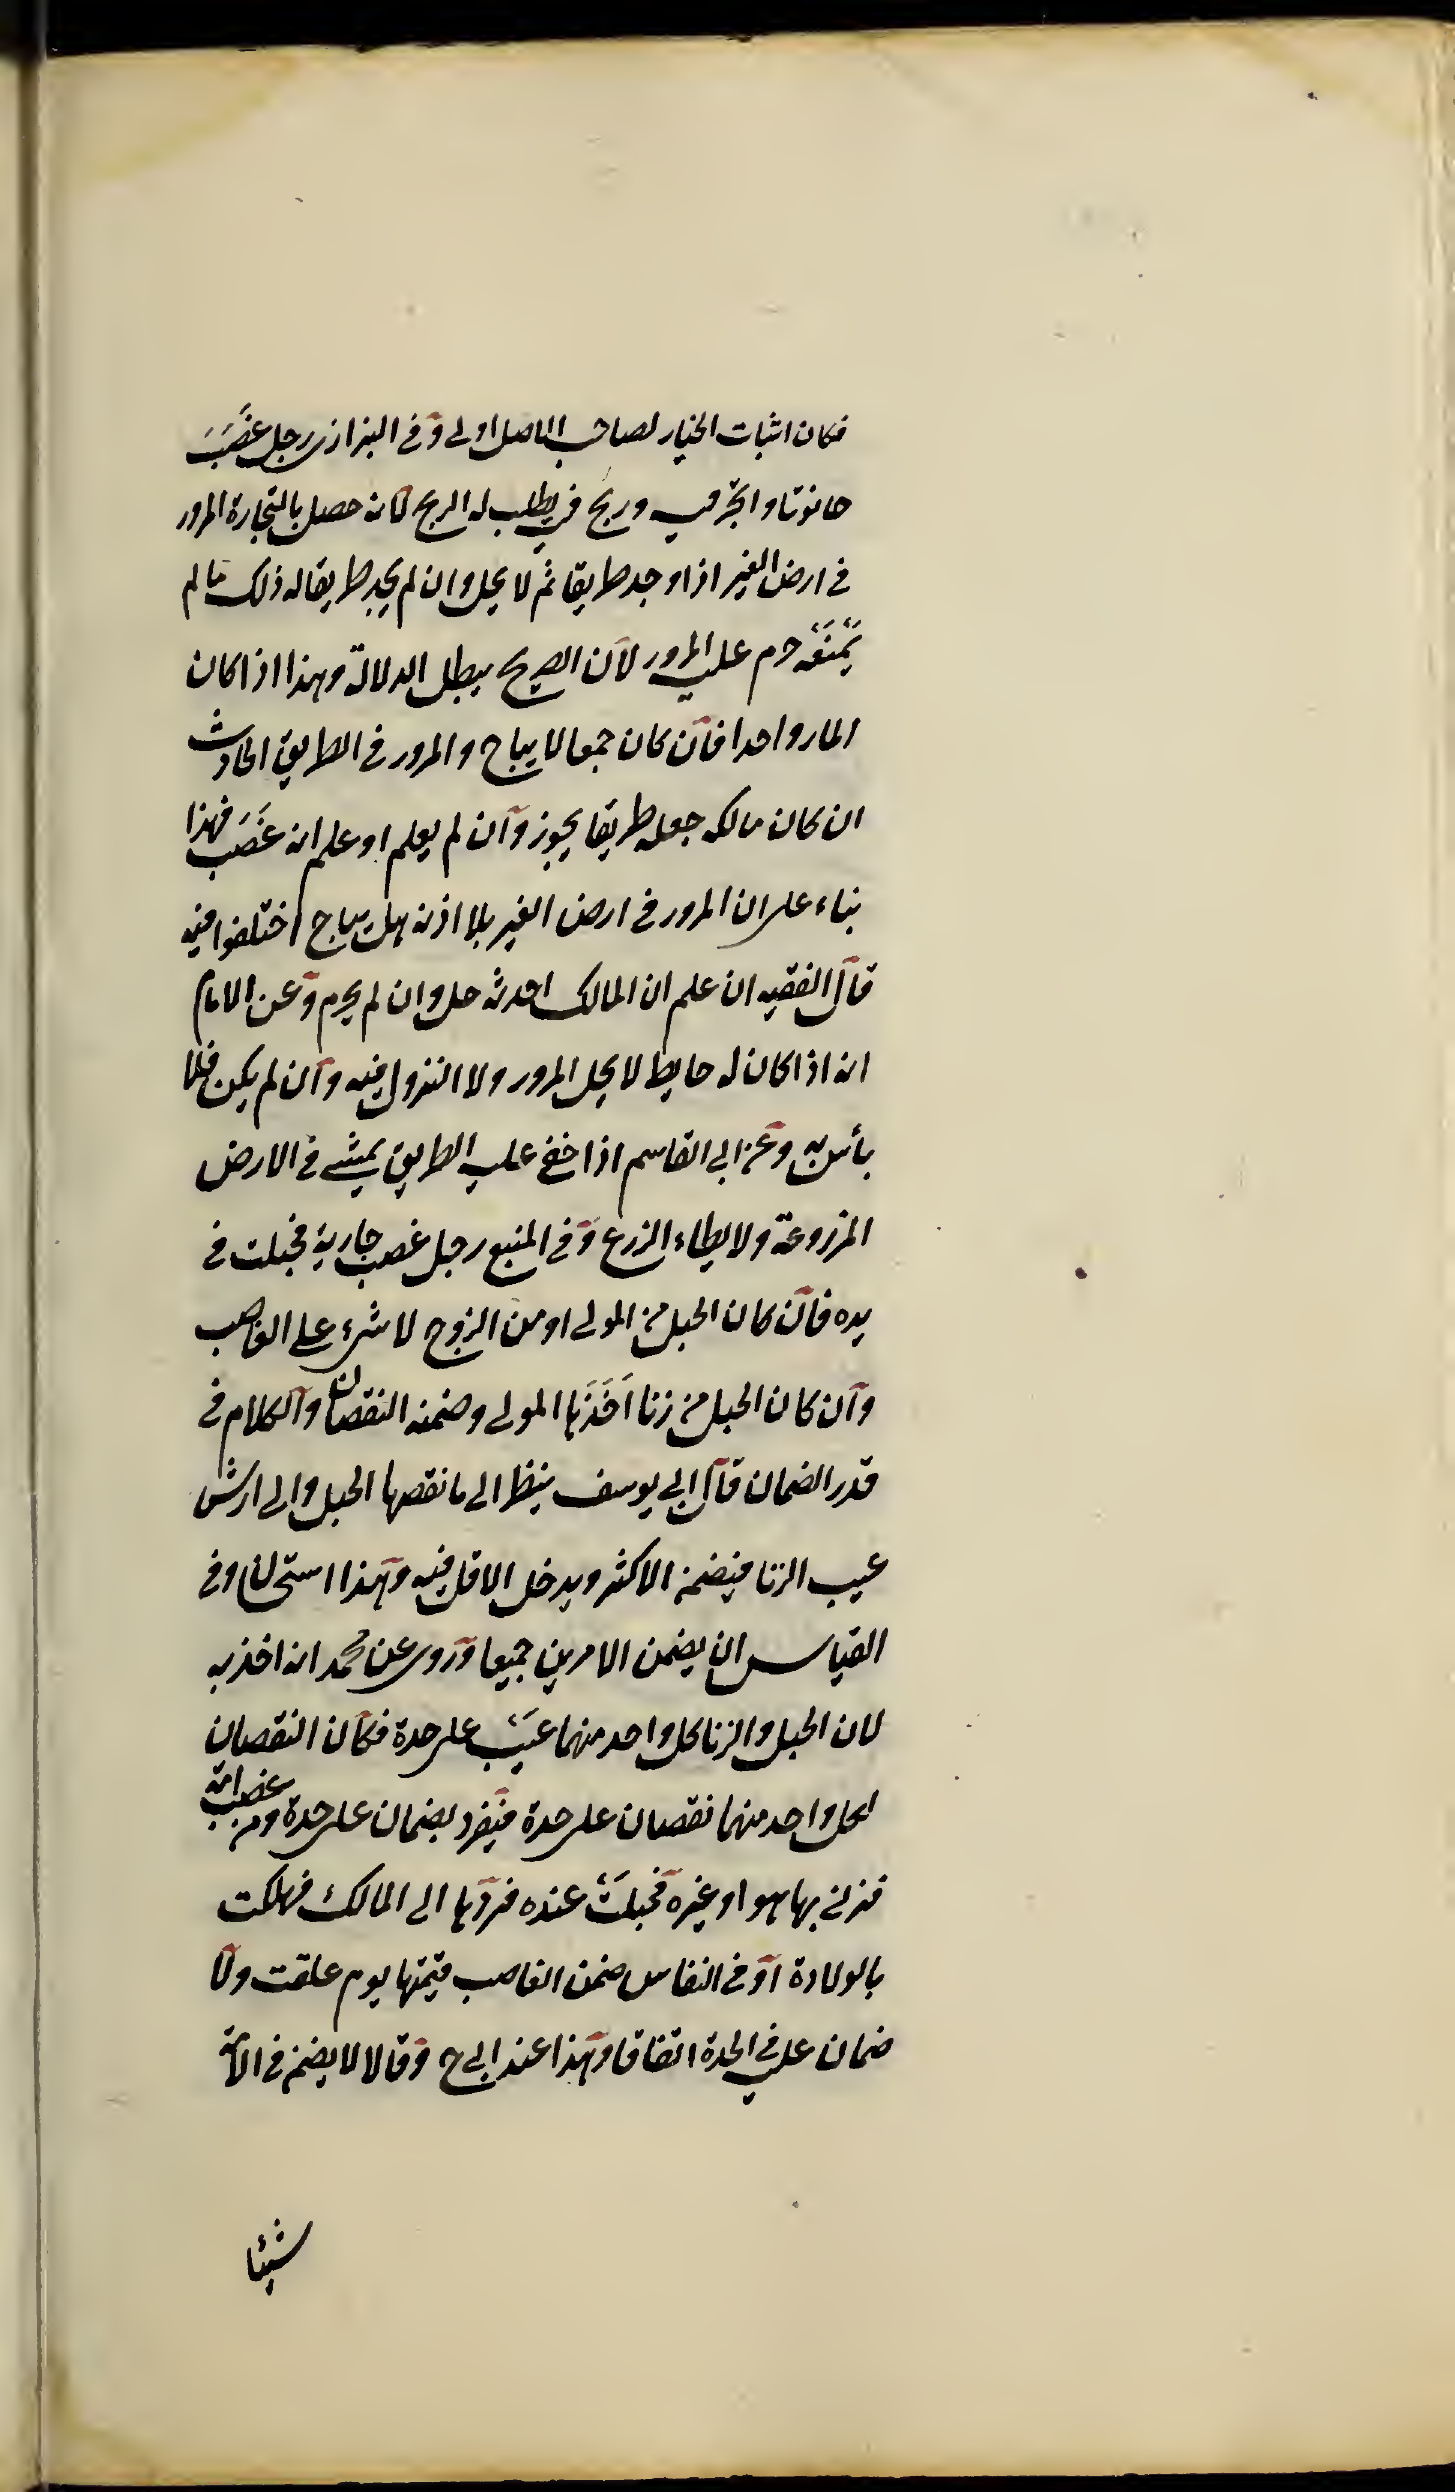 فكان اثبات الخيار لصاحب الاصل اولى وفى البزازى رجل غَصَبَ
حانوتا واتجر فيه وربح فيه يطلب له الربح لانه حصل بالتجارة المرور
فى ارض الغير اذا وجد طريقا ثَم لا يحل وان لم يجد طريقا له ذلك ما لم
يَمْنَعْه حرم عليه المرور لان الصريح يبطل الدلالة وهذا اذا كان
المار واحدا فان كان جمعا لا يباح والمرور فى الطريق الحادث
ان كان مالكه جعله طريقا يجوز وان لم يعلم او علم انه غَصَب فهذا
بناء على ان المرور فى ارض الغير بلا اذنه هل يباح اختلفوا فيه
قال الفقيه ان علم ان المالك احدثه حل وان لم يحرم وعن الامام
انه اذا كان له حايط لا يحل المرور ولا النزول فيه وان لم يكن فلا
بأس به وعن ابى القاسم اذا خفى عليه الطريق يمشى فى الارض
المزروعة ولا يطاء الزرع وفى المنبع رجل غصب جارية فحبلت فى
يده فان كان الحبل من المولى او من الزوج لا شىء على الغاصب
وان كان الحبل من زنا اَخَذَها المولى وضمنه النقصان والكلام فى
قدر الضمان قال ابى يوسف ينظر الى ما نقصها الحبل والى ارش
عيب الزنا فيضمن الاكثر ويدخل الاقل فيه وهذا استحسان وفى
القياس ان يضمن الامرين جميعا وروى عن محمد انه اخذ به
لان الحبل والزنا كل واحد منهما عَيْب على حدة فكان النقصان
لكل واحد منهما نقصان على حدة فيفرد بضمان على حدة ومن غصب امة
فزنى بها هو او غيره فحبلَتْ عنده فردّها الى المالك فهلكت
بالولادة او فى النفاس ضمن الغاصب قيمتها يوم علقت ولا
ضمان عليه فى الحرة اتفاقا وهذا عند ابى ح وقالا لا يضمن فى الامة
شيئا